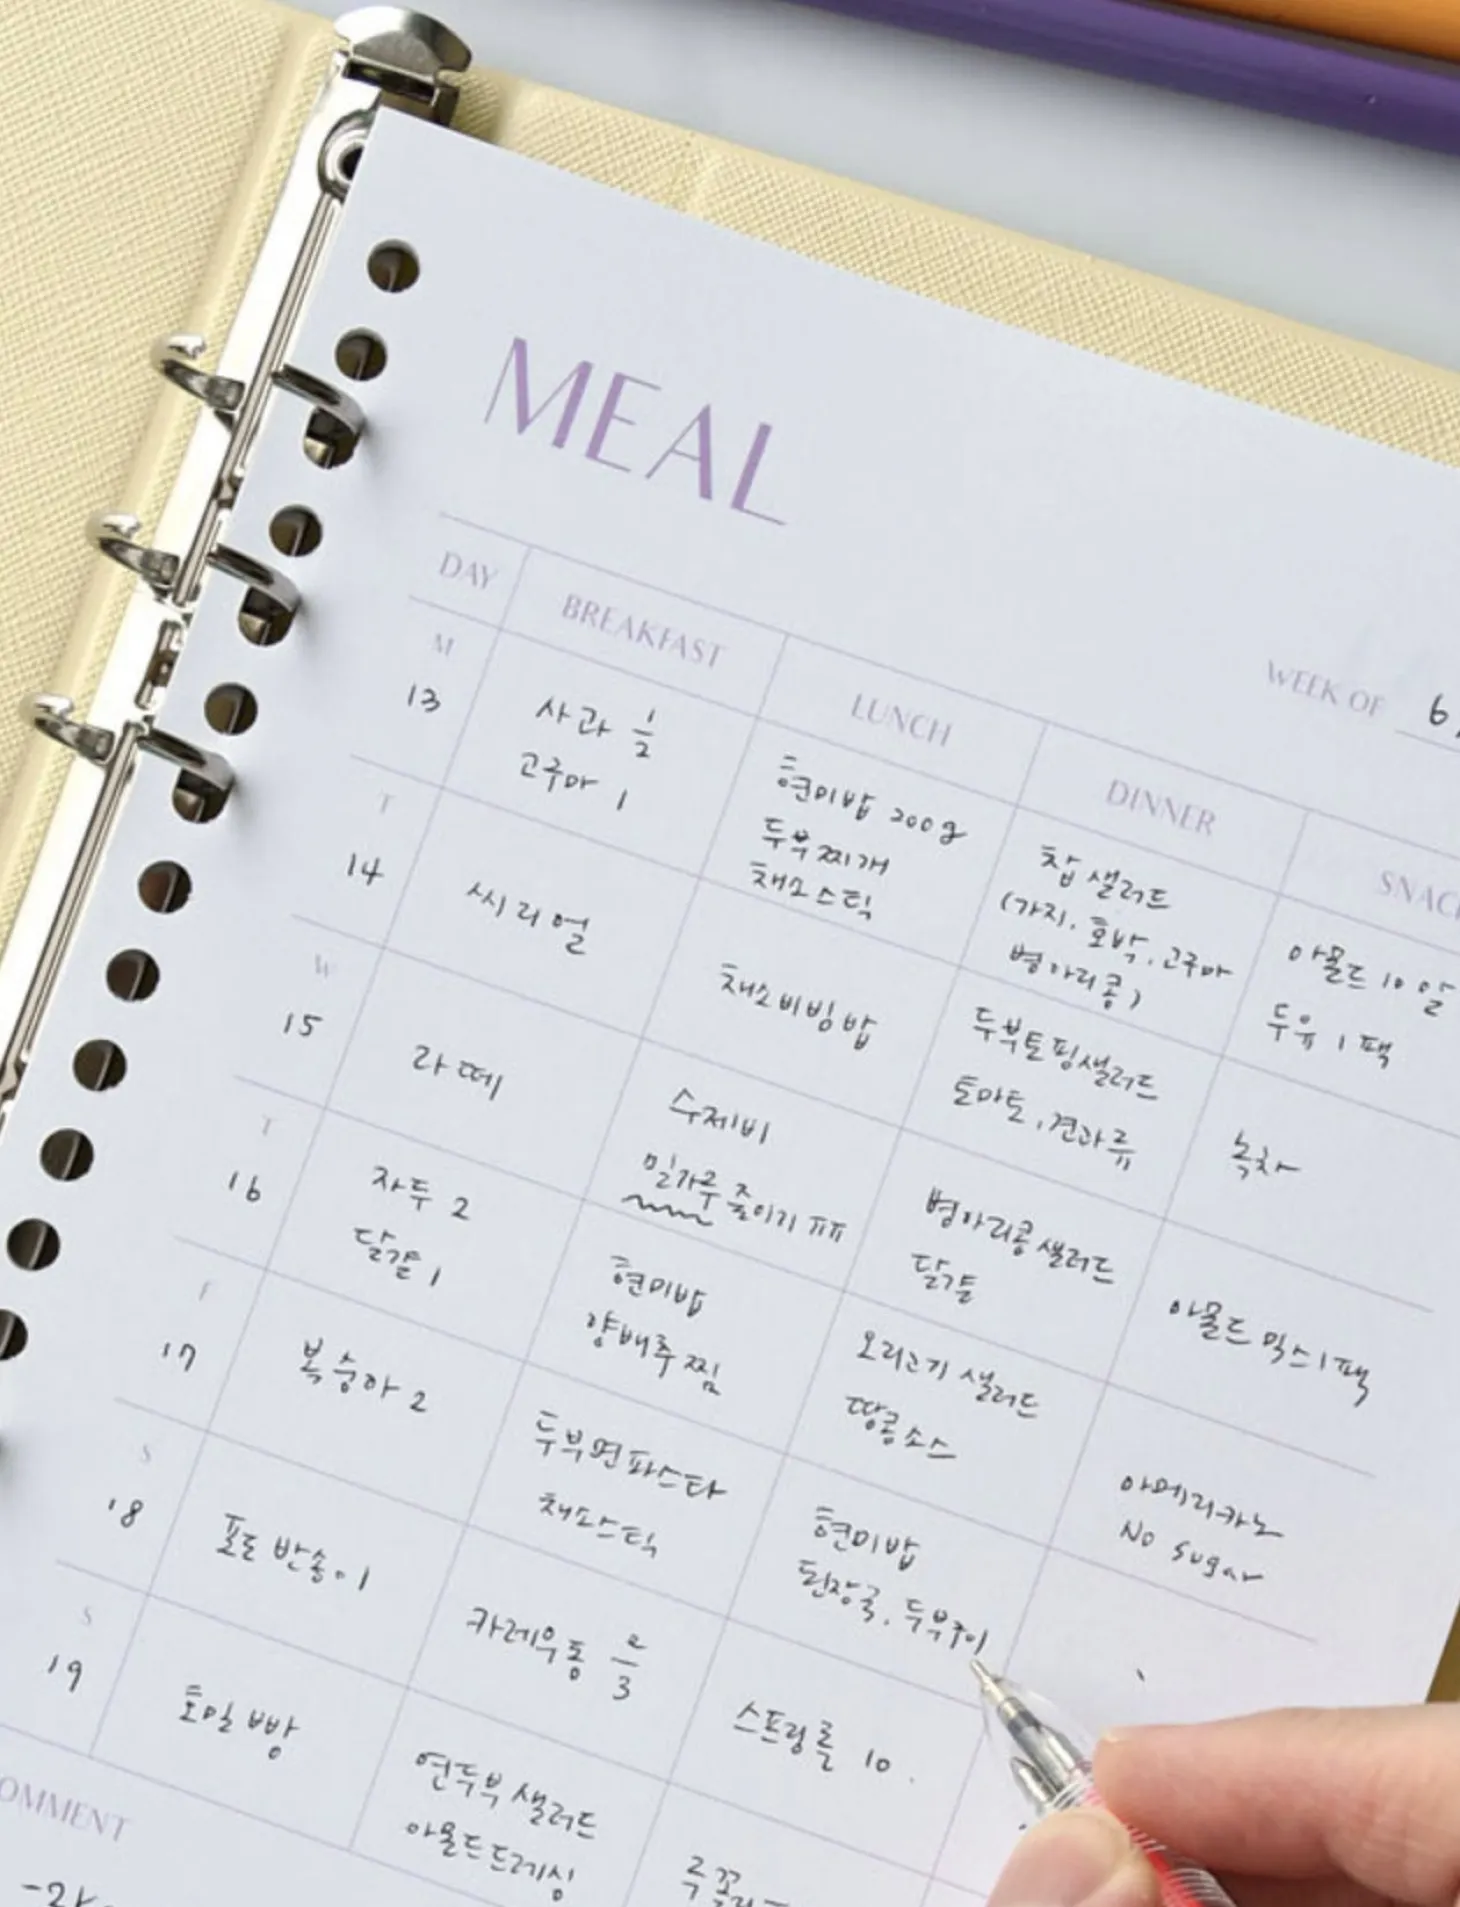 MEAL
WEEK OF 6
DAY BREAKFAST LUNCH DINNER
M
13
사과 1/2
고구마 1
현미밥 200g
두부찌개
채소스틱
찹샐러드
(가지, 호박, 고구마
병아리콩)
아몰드 10알
두유 1팩
T
14
씨리얼
채소비빔밥
두부토핑샐러드
토마토, 견과류
녹차
W
15
라떼
수제비
밀가루 줄이기 ㅠㅠ
병아리콩샐러드
달걀
아몰드믹스1팩
T
16
자두 2
달걀 1
현미밥
양배추찜
오리고기 샐러드
땅콩소스
아메리카노
No sugar
F
17
복숭아 2
두부면파스타
채소스틱
현미밥
된장국, 두부구이
S
18
포도 반송이
카레우동 2/3
스프링롤 10
S
19
호밀빵
연두부 샐러드
아몰드드레싱